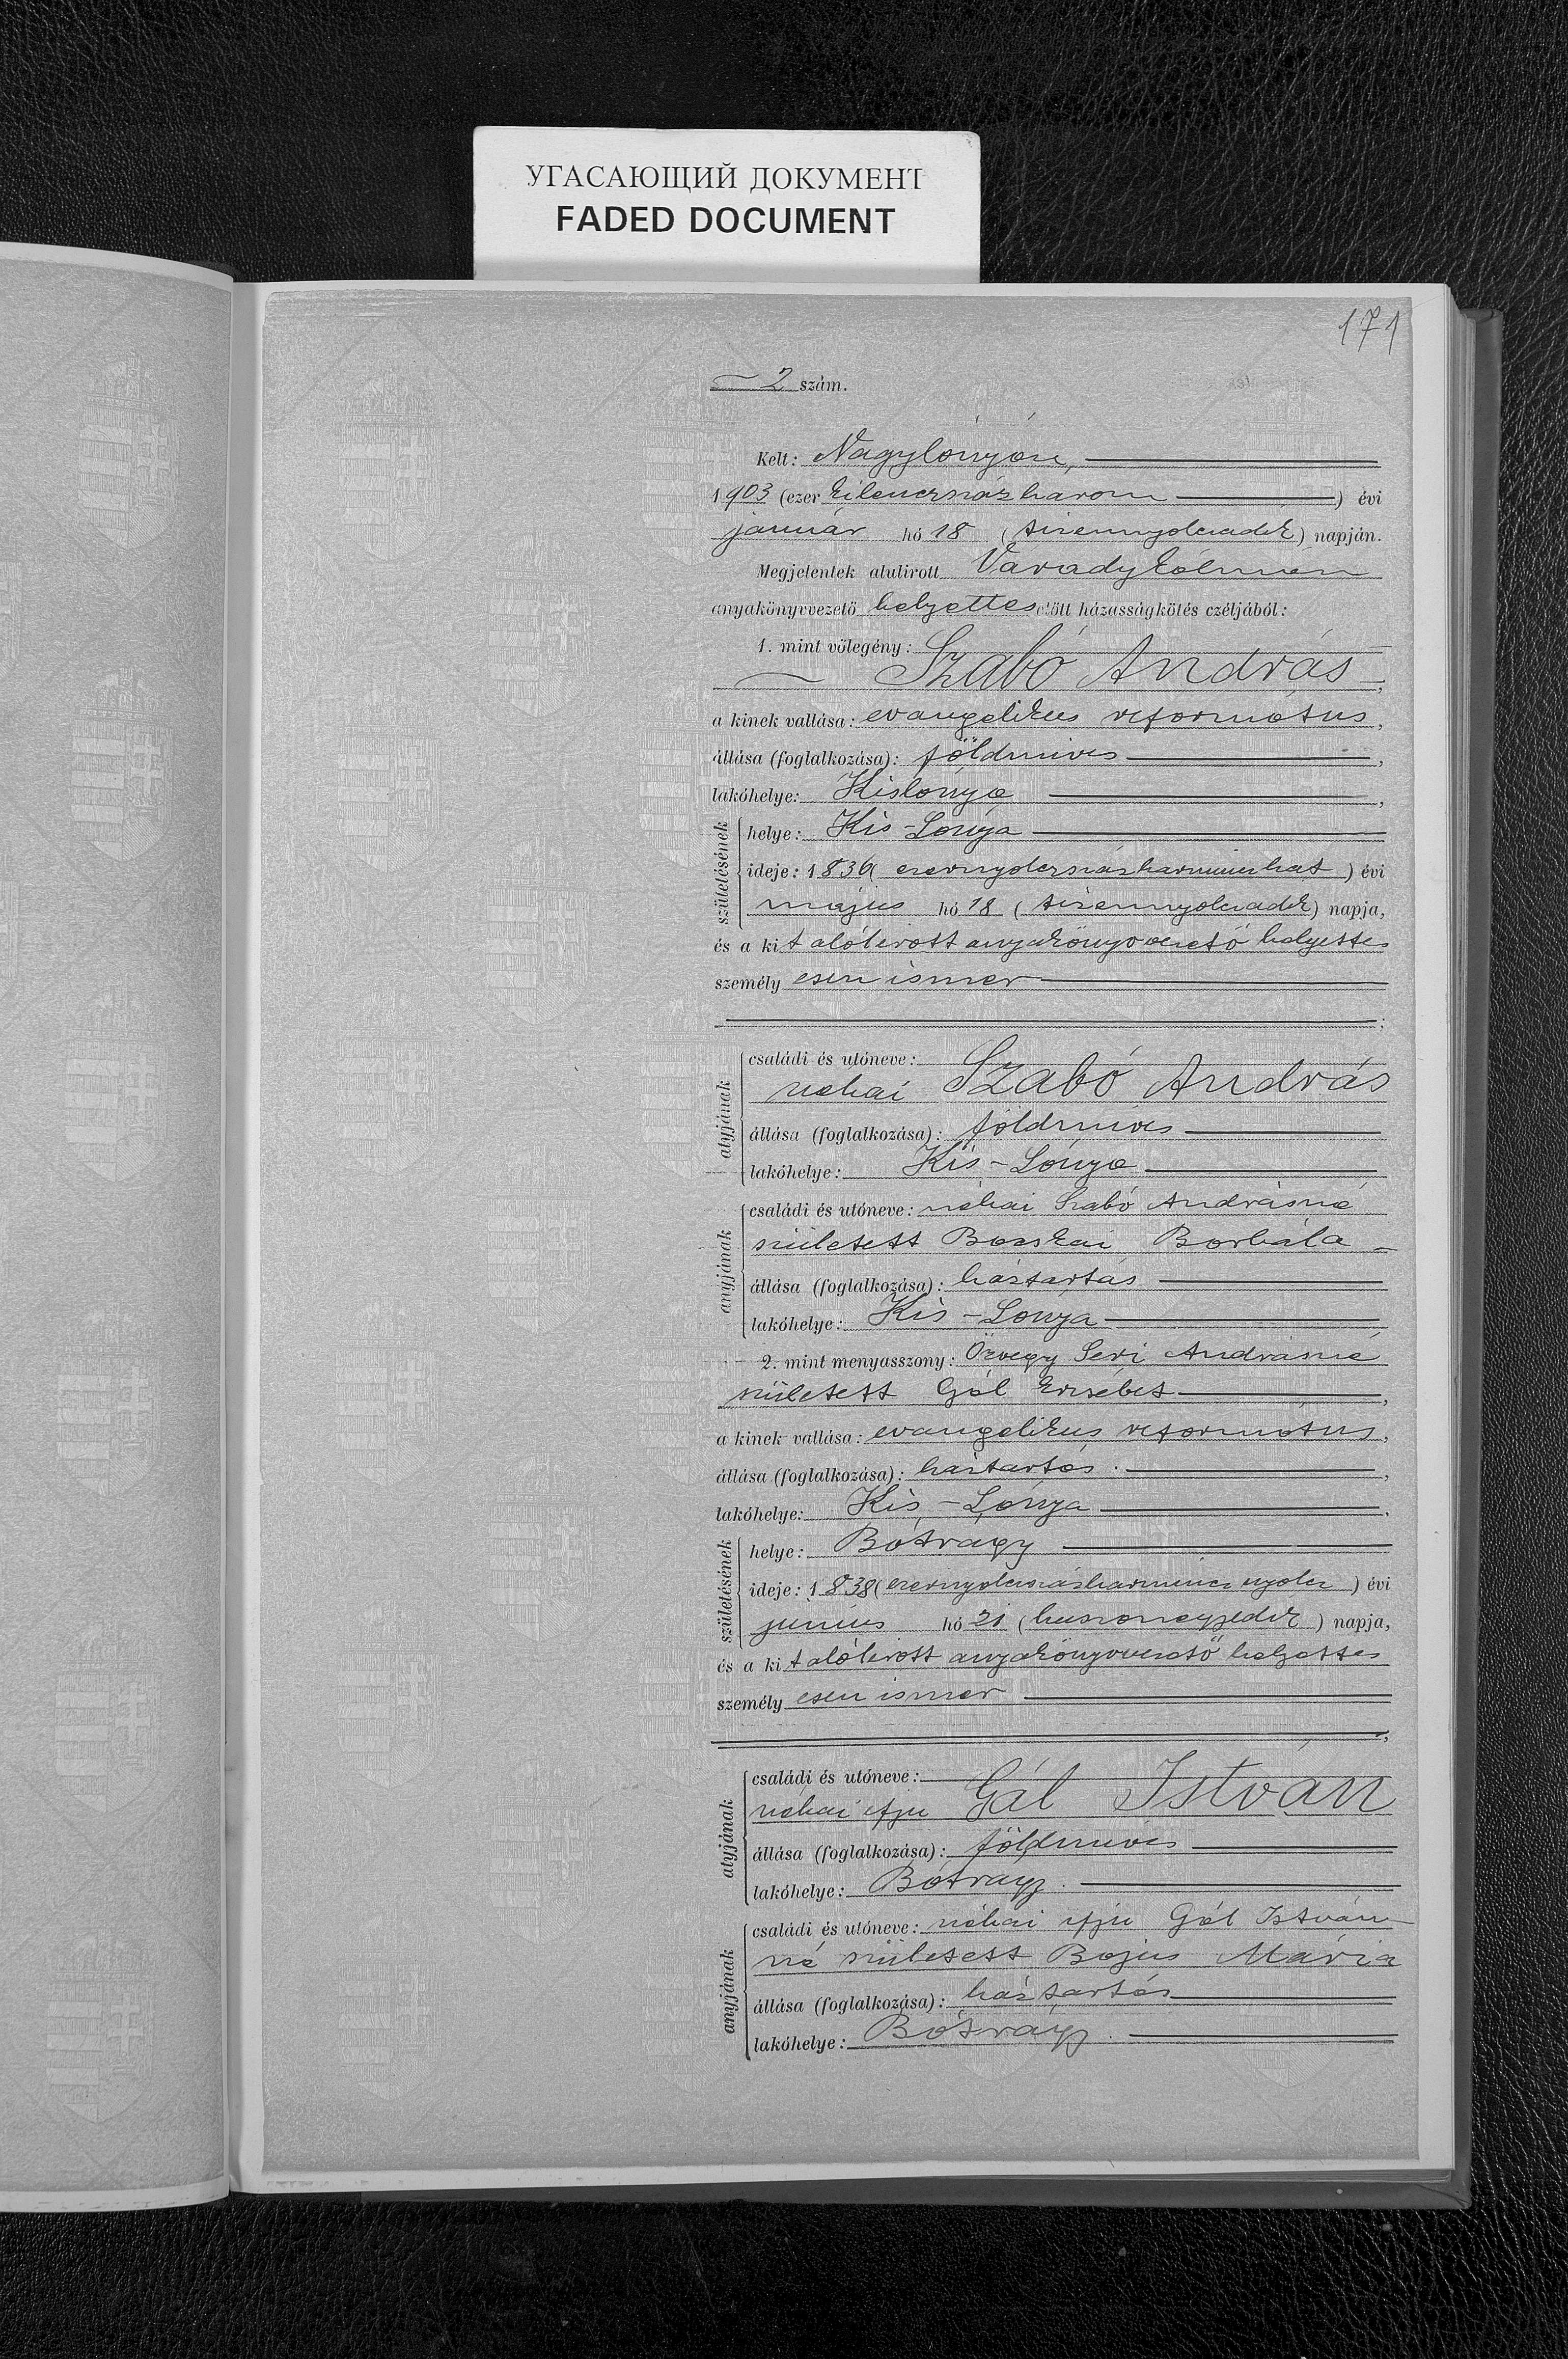 УГАСАЮЩИЙ ДОКУМЕНТ
FADED DOCUMENT
171
2 szám.
Kelt: Nagylónyán,
1903 (ezer kilenczszáz három) évi
január hó 18 (tizennyolczadik) napján.
Megjelentek alulirott Várady Kálmán
anyakönyvvezető helyettes előtt házasságkötés czéljából:
1. mint vőlegény:
Szabó András,
a kinek vallása: evangelikus református,
állása (foglalkozása): földmíves,
lakóhelye: Kislónya,
születésének
helye: Kis-Lónya
ideje: 1836 (ezernyolczszázharminczhat) évi
május hó 18 (tizennyolczadik) napja,
és a kit alólirott anyakönyvvezető helyettes
személyesen ismer
;
atyjának
családi és utóneve:
néhai Szabó András
állása (foglalkozása): földmíves
lakóhelye: Kis-Lónya
anyjának
családi és utóneve: néhai Szabó Andrásné
született Bocskai Borbála
állása (foglalkozása): háztartás
lakóhelye: Kis-Lónya
2. mint menyasszony: Özvegy Seri Andrásné
született Gál Erzsébet,
a kinek vallása: evangelikus református,
állása (foglalkozása): háztartás,
lakóhelye: Kis-Lónya,
születésének
helye: Bótrágy
ideje: 1838 (ezernyolczszázharmincz nyolcz) évi
junius hó 21 (huszonegyedik) napja,
és a kit alólirott anyakönyvvezető helyettes
személyesen ismer
,
atyjának
családi és utóneve:
néhai ifju Gál István
állása (foglalkozása): földmíves
lakóhelye: Bótrágy
anyjának
családi és utóneve: néhai ifju Gál István
né született Bajus Mária
állása (foglalkozása): háztartás
lakóhelye: Bótrágy